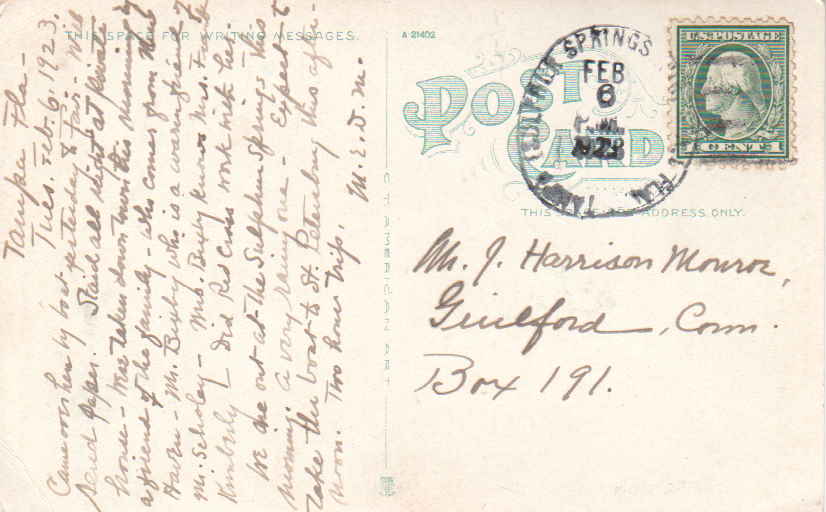 THIS SPACE FOR WRITING MESSAGES.
Tampa Fla-
Tues. Feb. 6, 1923.
Came over here by boat yesterday & Fair. Will
send paper. Staid all night at private
house - Was taken down town this morning by
a friend of the family - who comes from New
Haven - Mr. Bixby who is a warm friend of
Mr. Scholey - Mrs. Bixby knows Mrs.
Kimberly - Did Red Cross work with her.
We are out at the Sulphur Springs this
morning. A very rainy one - Expect to
take the boat to St. Petersburg this after-
noon. Two hours trip. M. E. D. M.
A 21402
POST
CARD
THIS SPACE FOR ADDRESS ONLY.
SULPHUR SPRINGS
FEB
6
1923
TAMPA FLA.
U.S. POSTAGE
CENTS
Mr. J. Harrison Monroe,
Guilford, Conn.
Box 191.